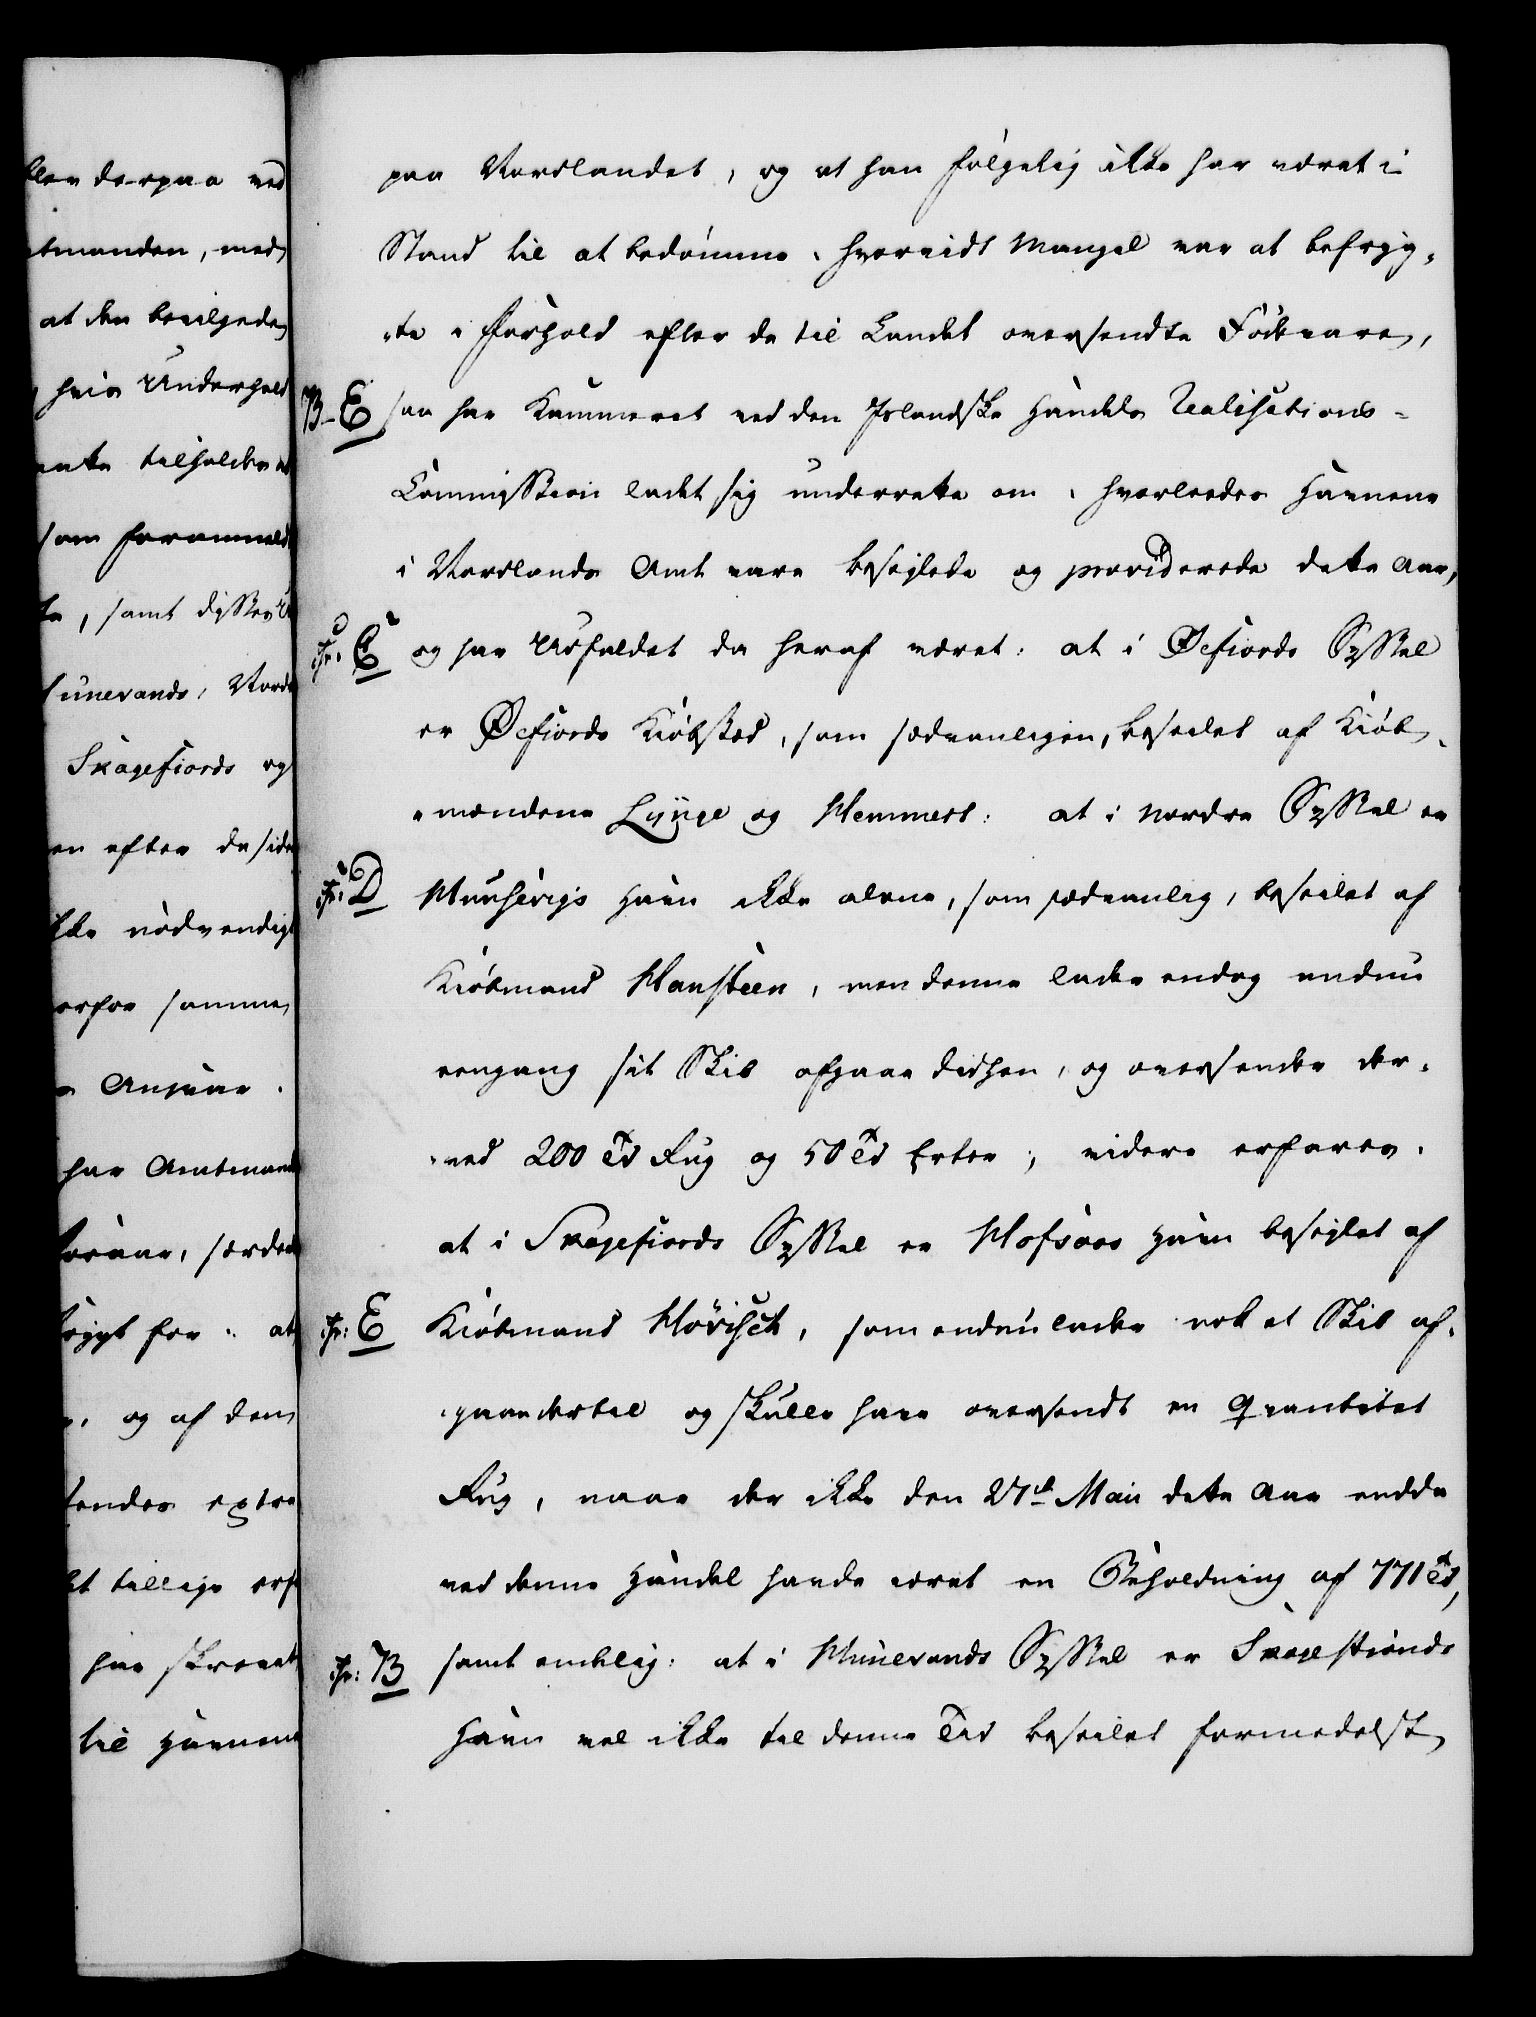 llen derpaa ved
tmanden, med
at den bevilgede
hvis Underhold
ente tilholdes at
som foranmeld
te, samt disses
unevands, Nord
Skagefiords og
en efter de side
kke nödvendigt
erfor samme
Ansvar.
har Amtmand
foraar, særdeles
frygt for: at
og af dem
sendes extra
et tillige erf
har skrevet
til Havnene
paa Nordlandet, og at han fölgelig ikke har været i
Stand til at bedömme, hvorvidt Mangel var at befryg-
-te i Forhold efter de til Landet oversendte Födevare,
B-E saa har Kammeret ved den Islandske Handels Realisations-
Commission ladet sig underrette om, hvorledes Havnene
i Nordlands Amt vare beseglede og providerede dette Aar,
cfr: C og har Udfaldet da heraf været: at i Öefiords Syssel
er Öefiords Kiöbsted, som sædvanligen, beseilet af Kiöb-
-mændene Lynge og Hemmert: at i Nordre Syssel er
cfr: D Huusevigs Havn ikke alene, som sædvanlig, beseilet af
Kiöbmand Hansteen, men denne lader endog endnu
eengang sit Skib afgaae didhen, og oversender der-
-ved 200 Td Rug og 50 Td Erter; videre erfares,
at i Skagefiords Syssel er Hofsoes Havn beseglet af
cfr: E Kiöbmand Hövisch, som endnu lader nok et Skib af-
-gaae dertil og skulle have oversendt en Qvantitet
Rug, naar der ikke den 27de Maii dette Aar endda
ved denne Handel havde været en Beholdning af 771 Td,
cfr: B samt endelig: at i Hunevands Syssel er Skagestrands
Havn vel ikke til denne Tid beseilet formedelst